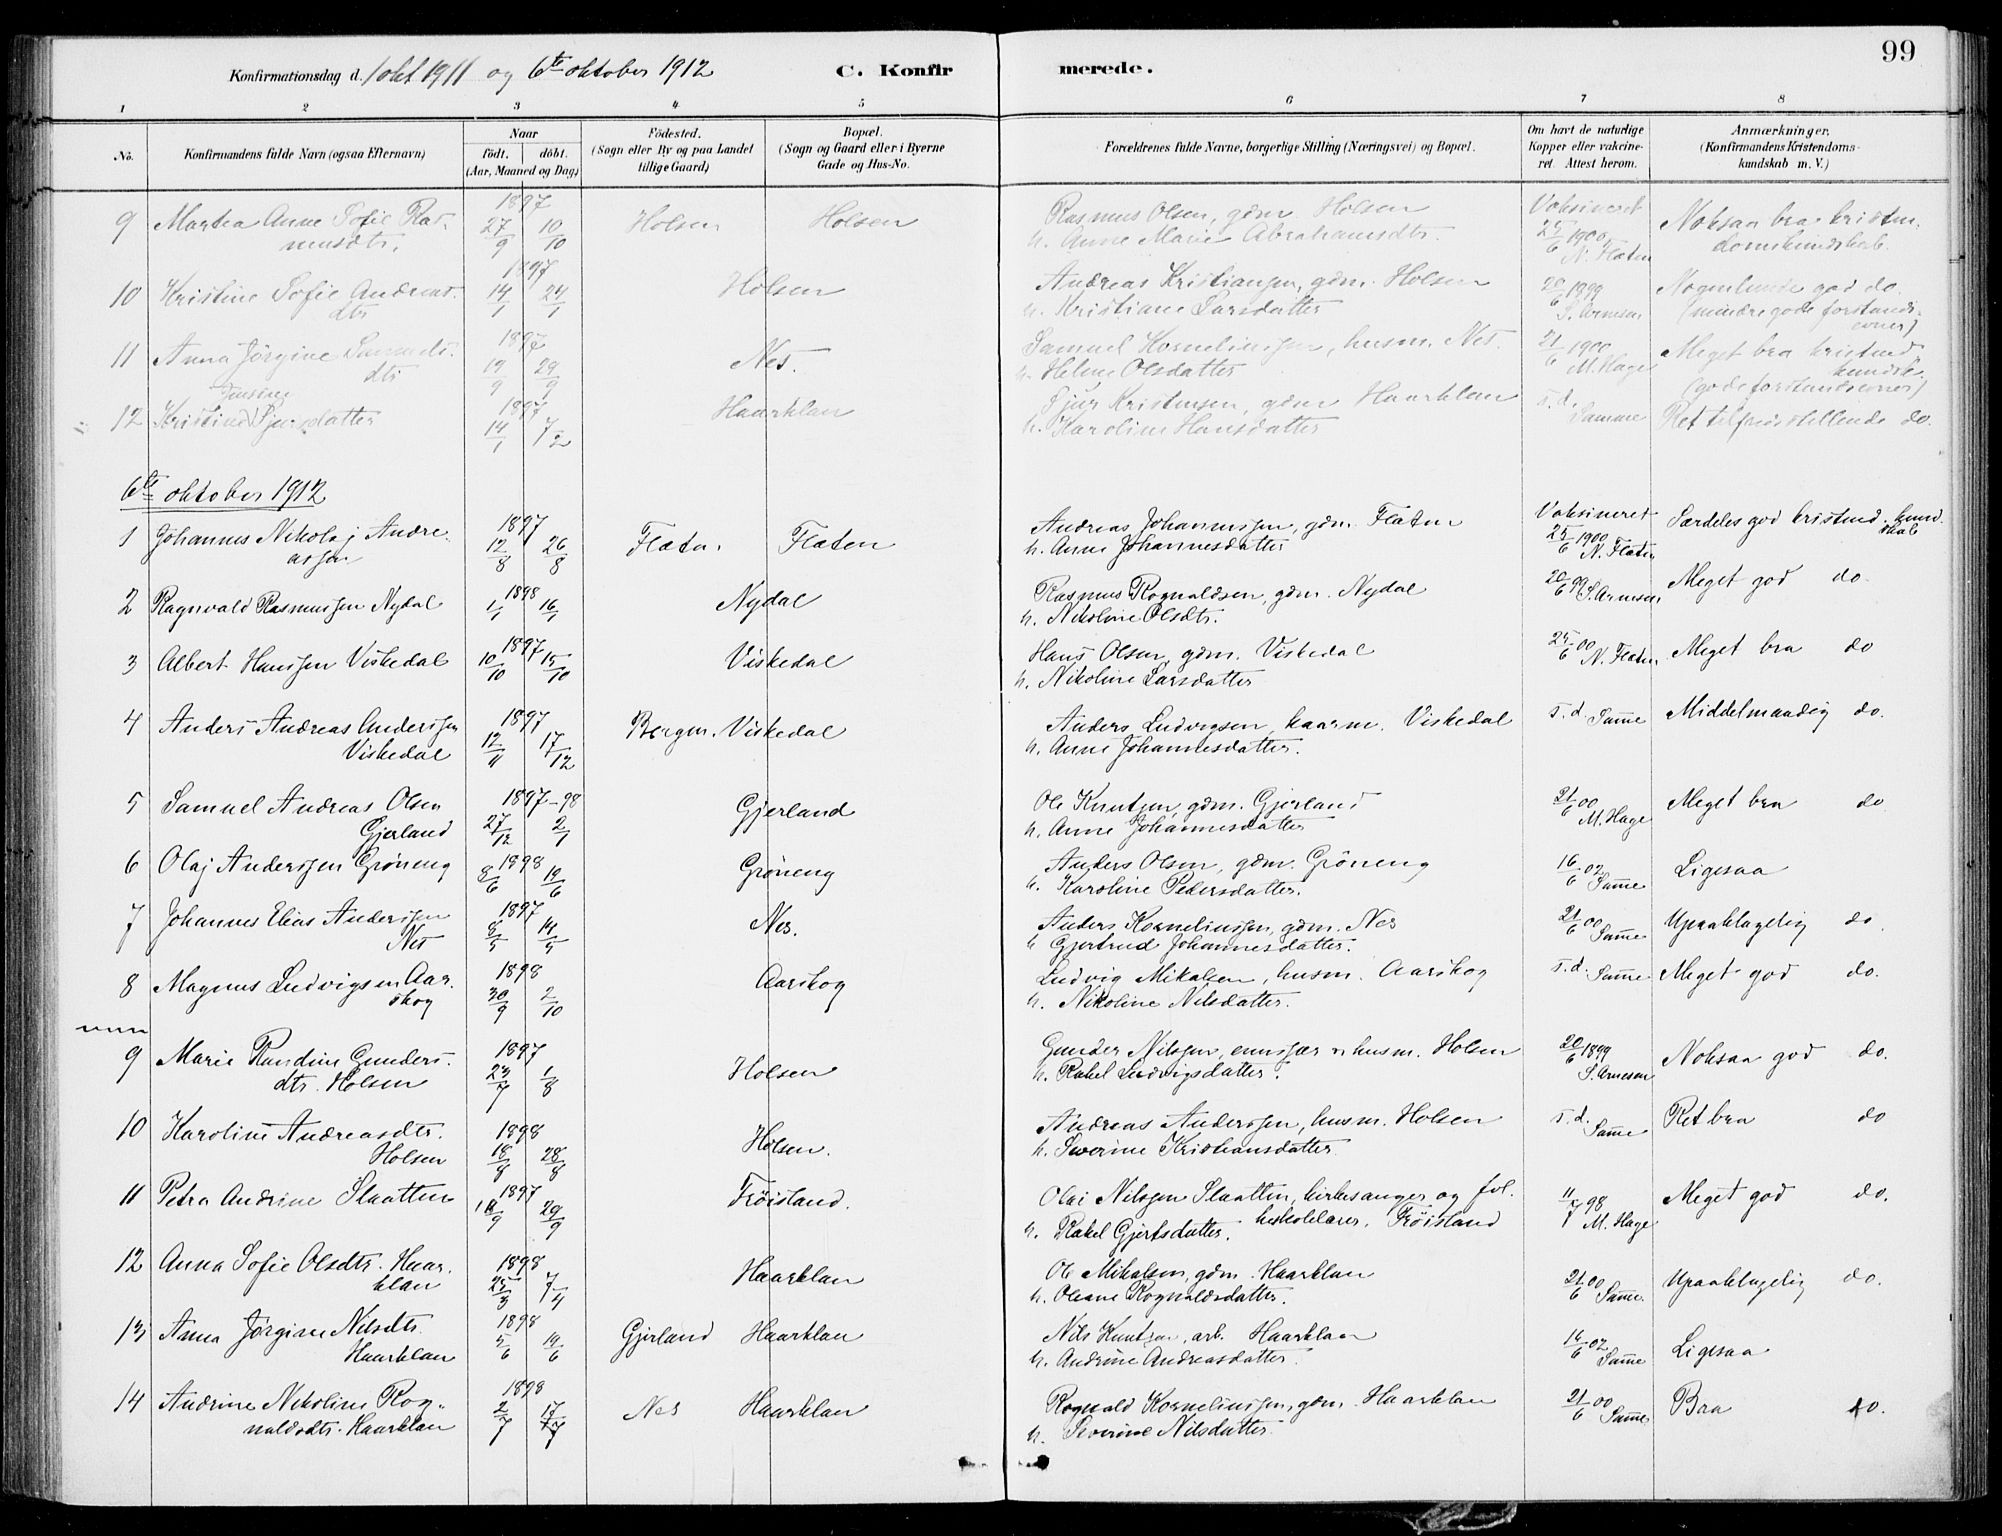 99
Konfirmationsdag d. 1 okt 1911 og 6te oktober 1912 C. Konfirmerede.
1 2 3 4 5 6 7 8
No. Konfirmandens fulde Navn (ogsaa Efternavn)
Naar
födt. döbt.
(Aar, Maaned og Dag)
Födested.
(Sogn eller By og paa Landet
tillige Gaard)
Bopæl.
(Sogn og Gaard eller i Byerne
Gade og Hus-No.
Forældrenes fulde Navne, borgerlige Stilling (Næringsvei) og Bopæl.
Om havt de naturlige
Kopper eller vakcine-
ret. Attest herom.
Anmærkninger.
(Konfirmandens Kristendoms-
kundskab m. V.)
9 Martea Anne Sofie Ras- 1897 Holsen Holsen Rasmus Olsen, gdm. Holsen Vaksineret Noksaa bra kristen-
musdtr. 27/9 10/10 h. Anne Marie Abrahamsdtr. 25/6 1900 N. Flaten domskundskab.
10 Kristine Sofie Andreas- 1897 Holsen Andreas Kristiansen, gdm. Holsen 20/6 1899 Nogenlunde god do.
dtr 14/1 24/1 h. Kristiane Larsdatter S. Arnesen (mindre gode forstands-
evner)
11 Anna Jørgine Samuels- 1897 Nes. Samuel Kornelinssen, husm. Nes. 21/6 1900 Meget bra kristend.
dtr 19/9 29/9 h. Helene Olsdatter M. Hage kundsk.
(gode forstandsevner)
12 Kristine Sjursdatter 1897 Haarklau Sjur Kristensen, gdm Haarklau s. d. Samme Ret tilfredsstillende do.
14/1 7/2 h. Karoline Hansdatter
6te oktober 1912
1 Johannes Nikolaj Andre- 1897 Flaten Flaten Andreas Johannessen, gdm. Flaten Vaksineret Særdeles god kristend. kund-
assen 12/8 26/8 h. Anne Johannesdatter 25/6 1900 N. Flaten skab
2 Ragnvald Rasmussen Nydal 1898 1/1 16/1 Nydal Rasmus Rognaldsen, gdm. Nydal 20/6 99 S. Arnesen Meget god do.
h. Nikoline Olsdtr.
3 Albert Hanssen Viskedal 1897 10/10 15/10 Viskedal Hans Olsen, gdm. Viskedal 25/6 00 N. Flaten Meget bra do
h. Nikoline Larsdatter
4 Anders Andreas Anderssen 1897 Bergen. Viskedal Anders Ludvigsen, kaarm. Viskedal s. d. Samme Middelmaadig do.
Viskedal 12/11 17/12 h. Anne Johannesdatter.
5 Samuel Andreas Olsen 1897-98 Gjerland Ole Knutsen, gdm. Gjerland 21/6 00 Meget bra do
Gjerland 27/12 2/1 h. Anne Johannesdatter M. Hage
6 Olaj Anderssen Grøneng 1898 8/6 19/6 Grøneng Anders Olsen, gdm. Grøneng 16/6 02 Samme Ligesaa
h. Karoline Pedersdatter.
7 Johannes Elias Anderssen 1897 Nes. Anders Kornelinssen, gdm. Nes 21/6 00 Samme Upaaklagelig do.
Nes 8/5 14/5 h. Gjertrud Johannesdatter.
8 Magnus Ludvigsen Aar- 1898 Aarskog Ludvig Mikalsen, husm. Aarskog s. d. Samme Meget god do.
skog 30/9 2/10 h. Nikoline Nilsdatter.
9 Marie Randine Gunders- 1897 Holsen Gunder Nilssen, husm. Holsen 20/6 1899 Noksaa god do.
dtr. Holsen 23/7 1/8 h. Rakel Ludvigsdatter. S. Arnesen
10 Karoline Andreasdtr. 1898 Holsen. Andreas Anderssen, husm. Holsen s. d. Samme Ret bra do
Holsen 18/8 28/8 h. Severine Kristiansdatter
11 Petra Andrine Slaatten 1897 Frøisland. Olai Nilssen Slaatten, kirkesanger og fol- 11/7 98 Meget god do.
18/9 29/9 h. Rakel Gjertsdatter. keskolelærer, Frøisland M. Hage
12 Anna Sofie Olsdtr. Haar- 1898 Haarklau Ole Mikalsen, gdm. Haarklau 21/6 00 Samme Upaaklagelig do.
klau 25/3 7/4 h. Oleane Rognaldsdatter.
13 Anna Jørgine Nilsdtr. 1898 Gjerland Haarklau Nils Knutsen, arb. Haarklau 16/6 02 Samme Ligesaa
Haarklau 5/6 19/6 h. Andrine Andreasdatter.
14 Andrine Nikoline Rog- 1898 Nes Haarklau Rognald Kornelinssen, gdm. Haarklau 21/6 00 Samme Bra do.
naldsdtr. Haarklau 2/7 17/7 h. Severine Nilsdatter